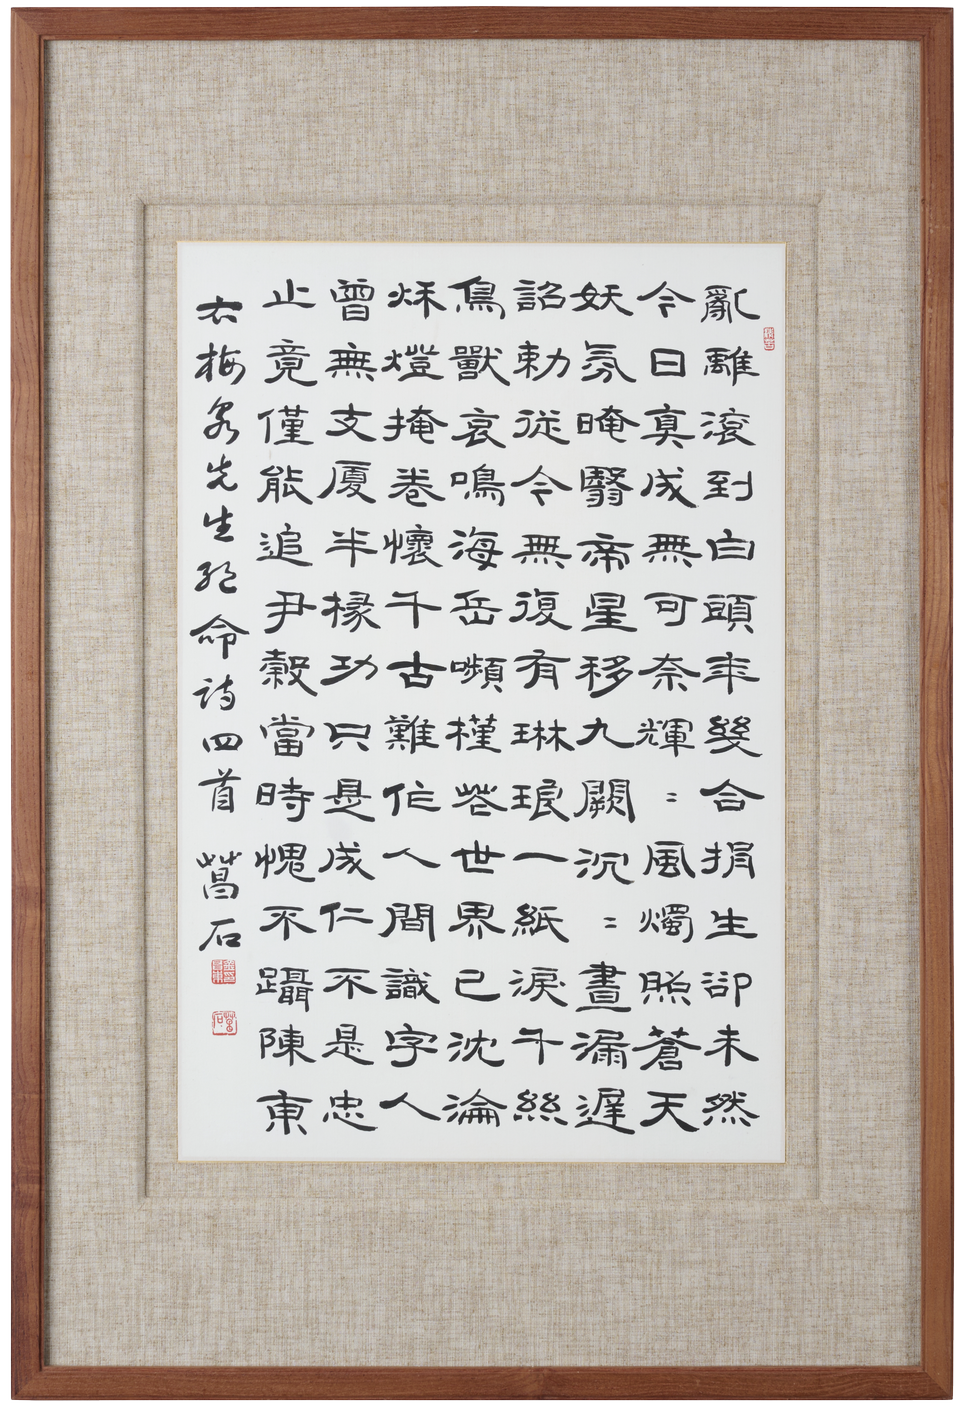 亂離滾到白頭年幾合捐生卻未然
今日眞成無可奈輝〻風燭照蒼天
妖氛晻翳帝星移九闕沉〻晝漏遲
詔勅從今無復有琳琅一紙淚千絲
鳥獸哀鳴海岳嚬槿花世界已沈淪
秋燈掩卷懷千古難作人間識字人
曾無支廈半椽功只是成仁不是忠
止竟僅能追尹穀當時愧不躡陳東
右梅泉先生絶命詩四首 菖石